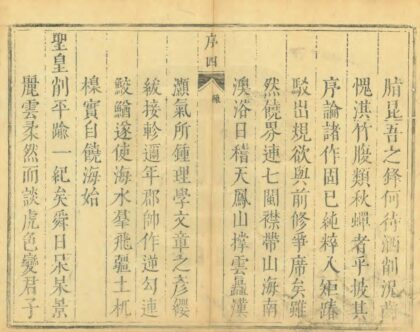 昆吾之鋒何待洒削況
愧淇竹腹類秋蟬者乎披其
序論諸作固已純粹入矩
駁出規欲與前修爭席矣雖
然饒界連七閩襟帶山海南
澳浴日稽天鳳山撐雲矗漢
序四
灝氣所鍾理學文章之彥纓
紱接軫邇年郡帥作逆勾連
鮫鱷遂使海水羣飛疆土杌
實自饒海始
聖皇削平踰一紀矣舜日杲杲景
麗雲柔然而談虎色變君子